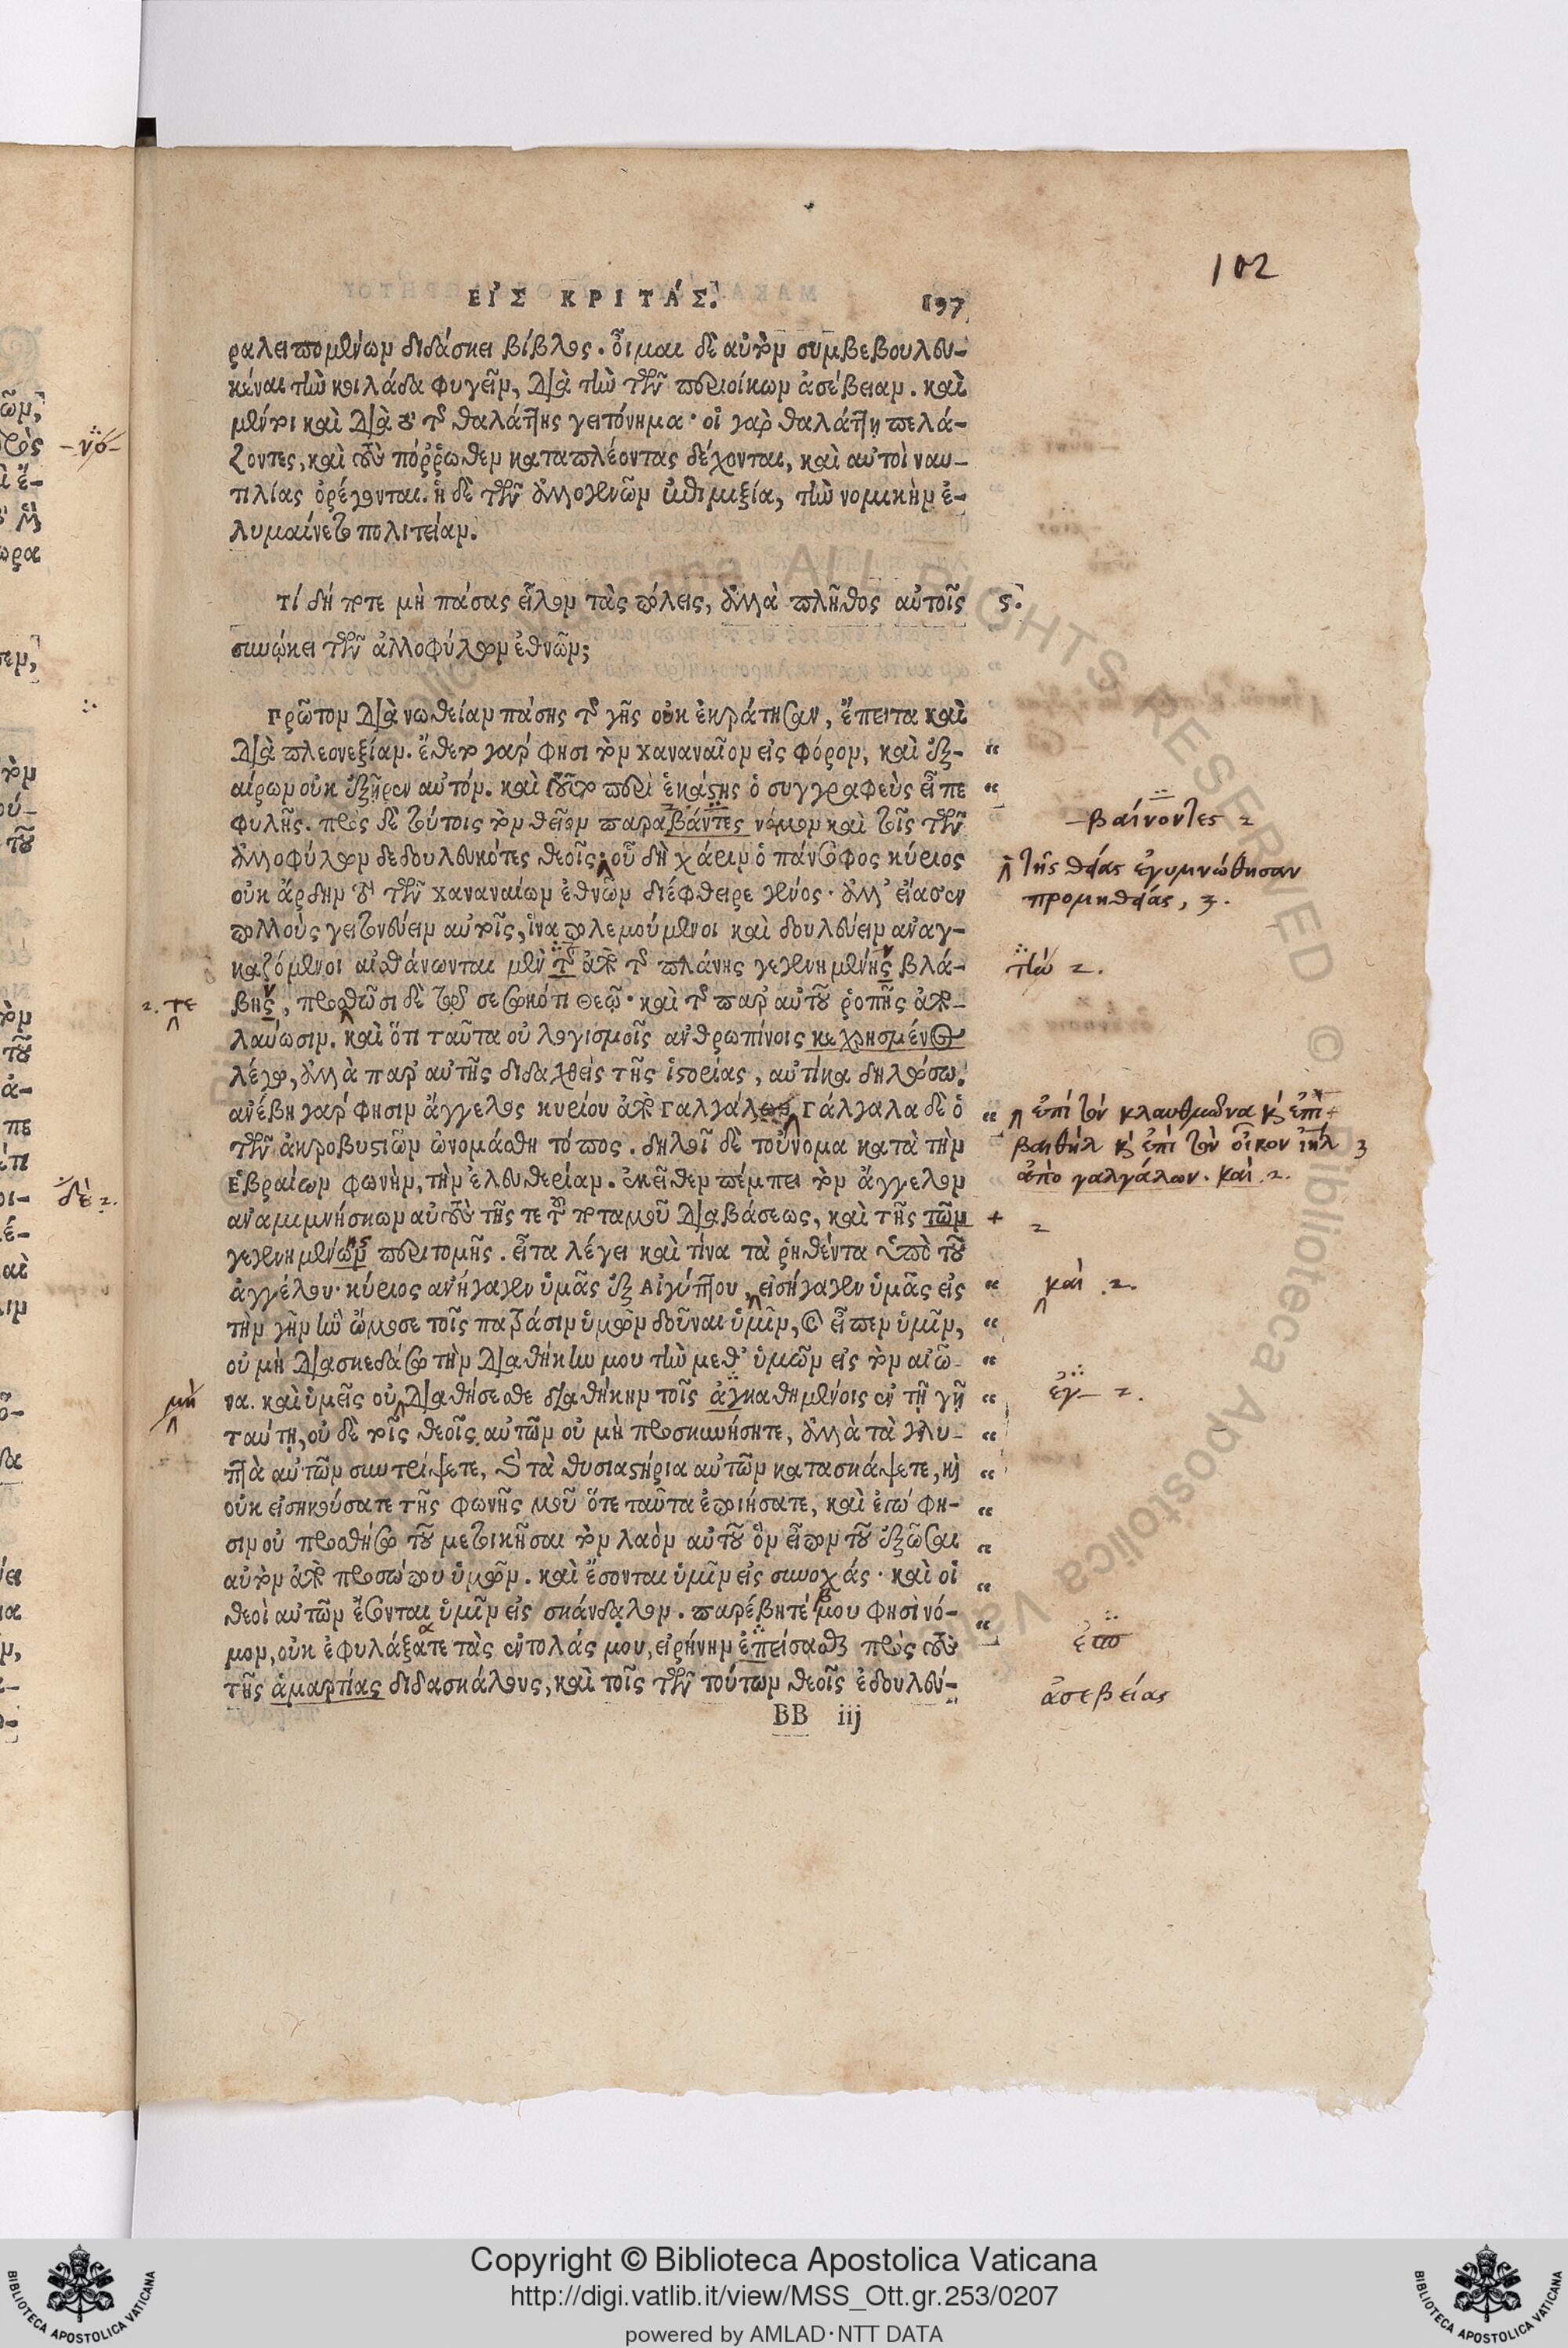 102
ΕΙ᾿Σ ΚΡΙΤΑ΄Σ. 197
ραλειπομένων διδάσκει βίβλος. οἶμαι δὲ αὐτὸν συμβεβουλευ-
κέναι τὴν κοιλάδα φυγεῖν, διὰ τὴν τῶν περιοίκων ἀσέβειαν. καὶ
μέντοι καὶ διὰ τὸ τῆς θαλάττης γειτόνημα· οἱ γὰρ θαλάττῃ πελά-
ζοντες, καὶ τοὺς πόῤῥωθεν καταπλέοντας δέχονται, καὶ αὐτοὶ ναυ-
τιλίας ὀρέγονται. ἡ δὲ τῶν ἀλλογενῶν ἐπιμιξία, τὴν νομικὴν ἐ-
λυμαίνετο πολιτείαν.
τί δή ποτε μὴ πάσας εἷλον τὰς πόλεις, ἀλλὰ πλῆθος αὐτοῖς ς.
συνῴκει τῶν ἀλλοφύλων ἐθνῶν;
Πρῶτον διὰ νωθείαν πάσης τῆς γῆς οὐκ ἐκράτησαν, ἔπειτα καὶ
διὰ πλεονεξίαν. ἔθετο γάρ φησι τὸν χαναναῖον εἰς φόρον, καὶ ἐξ-
αίρων οὐκ ἐξῇρεν αὐτόν. καὶ τοῦτο περὶ ἑκάστης ὁ συγγραφεὺς εἶπε
φυλῆς. πρὸς δὲ τούτοις τὸν θεῖον παραβάντες νόμον καὶ τοῖς τῶν
– βαίνοντες 2
ἀλλοφύλων δεδουλευκότες θεοῖς, οὗ δὴ χάριν ὁ πάνσοφος κύριος
τῆς θείας ἐγυμνώθησαν
προμηθείας, 3.
οὐκ ἄρδην τὸ τῶν χαναναίων ἐθνῶν διέφθειρε γένος· ἀλλ᾽ εἴασεν
πολλοὺς γειτονεύειν αὐτοῖς, ἵνα πολεμούμενοι καὶ δουλεύειν αναγ-
καζόμενοι αἰσθάνωνται μὲν τῆς ἀπὸ τῆς πλάνης γεγενημένης βλά-
τὴν 2.
2. τε
βης, προσίωσι δὲ τῷ σεσωκότι Θεῷ· καὶ τῆς παρ᾽ αὐτοῦ ῥοπῆς ἀπο-
λαύωσιν. καὶ ὅτι ταῦτα οὐ λογισμοῖς ανθρωπίνοις κεχρησμένος
λέγω, ἀλλὰ παρ᾽ αυτῆς διδαχθεὶς τῆς ἱστορίας, αὐτίκα δηλώσω.
ανέβη γάρ φησιν ἄγγελος κυρίου ἀπὸ Γαλγάλων Γάλγαλα δὲ ὁ
ἐπὶ τὸν κλαυθμῶνα κ̀ ἐπὶ
βαιθὴλ κ̀ ἐπὶ τὸν οἶκον ἰηλ 3
ἀπὸ γαλγάλων. καὶ. 2.
τῶν ἀκροβυστιῶν ὠνομάσθη τόπος. δηλοῖ δὲ τοὔνομα κατὰ τὴν
Ἑβραίων φωνὴν, τὴν ἐλευθερίαν. ἐκεῖθεν πέμπει τὸν ἄγγελον
αναμιμνήσκων αὐτοὺς τῆς τε τοῦ ποταμοῦ διαβάσεως, καὶ τῆς τῶν + 2
γεγενημένων περιτομῆς. εἶτα λέγει καὶ τίνα τὰ ῥηθέντα ὑπὸ τοῦ
ἀγγέλου· κύριος ανήγαγεν ὑμᾶς ἐξ Αἰγύπτου, εἰσήγαγεν ὑμᾶς εἰς
καὶ .2.
τὴν γῆν ἣν ὤμοσε τοῖς πατράσιν ὑμῶν δοῦναι ὑμῖν, καὶ εἶπεν ὑμῖν,
οὐ μὴ διασκεδάσω τὴν διαθήκην μου τὴν μεθ᾽ ὑμῶν εἰς τὸν αἰῶ-
μὴ
να. καὶ ὑμεῖς οὐ διαθήσεσθε διαθήκην τοῖς ἀγκαθημένοις ἐν τῇ γῇ
ἐγ– 2.
ταύτῃ, οὐ δὲ τοῖς θεοῖς αὐτῶν οὐ μὴ προσκυνήσητε, ἀλλὰ τὰ γλυ-
πτὰ αὐτῶν συντρίψετε, καὶ τὰ θυσιαστήρια αὐτῶν κατασκάψετε, κὶ
οὐκ εἰσηκούσατε τῆς φωνῆς μοῦ ὅτε ταῦτα ἐποιήσατε, καὶ ἐγώ φη-
σιν οὐ προσθήσω τοῦ μετοικῆσαι τὸν λαὸν αὐτοῦ ὃν εἶπον τοῦ ἐξῶσαι
αὐτὸν ἀπὸ προσώπου ὑμῶν. καὶ ἔσονται ὑμῖν εἰς συνοχάς· καὶ οἱ
θεοὶ αὐτῶν ἔσονται ὑμῖν εἰς σκάνδαλον. παρέβητέ μου φησὶ νό-
μον, οὐκ ἐφυλάξατε τὰς ἐντολάς μου, εἰρήνην ἐπείσασθε πρὸς τοὺς
τῆς ἁμαρτίας διδασκάλους, καὶ τοῖς τῶν τούτων θεοῖς ἐδουλεύ-
ἀσεβείας
BB iij
Copyright © Biblioteca Apostolica Vaticana
http://digi.vatlib.it/view/MSS_Ott.gr.253/0207
powered by AMLAD·NTT DATA